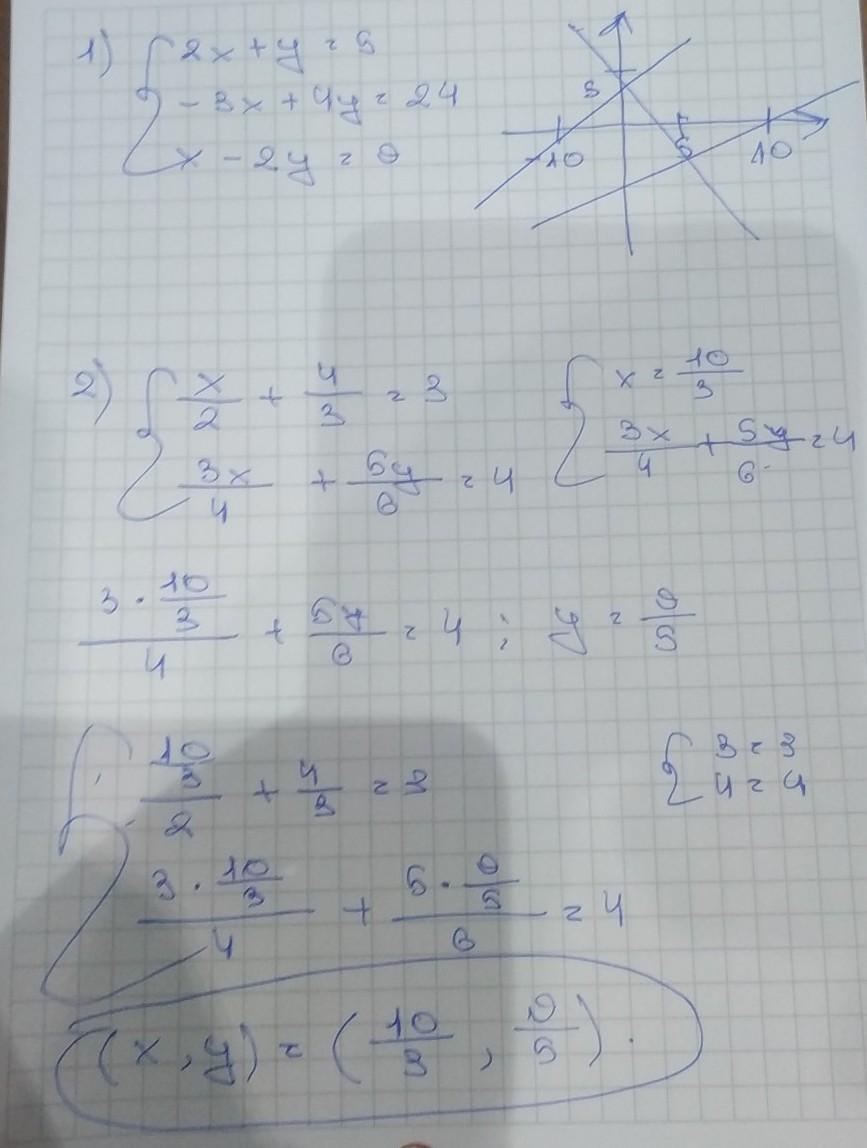 1) { 2x + y = 5
-3x + 4y = 24
x - 2y = 9
5
-10
5
10
2) { x/2 + 4/3 = 3
3x/4 + 5y/6 = 4
{ x = 10/3
3x/4 + 5y/6 = 4
(3 · 10/3)/4 + 5y/6 = 4 ; y = 9/5
{ (10/3)/2 + 4/3 = 3
(3 · 10/3)/4 + (5 · 9/5)/6 = 4
{ 3 = 3
4 = 4
(x, y) = (10/3, 9/5).